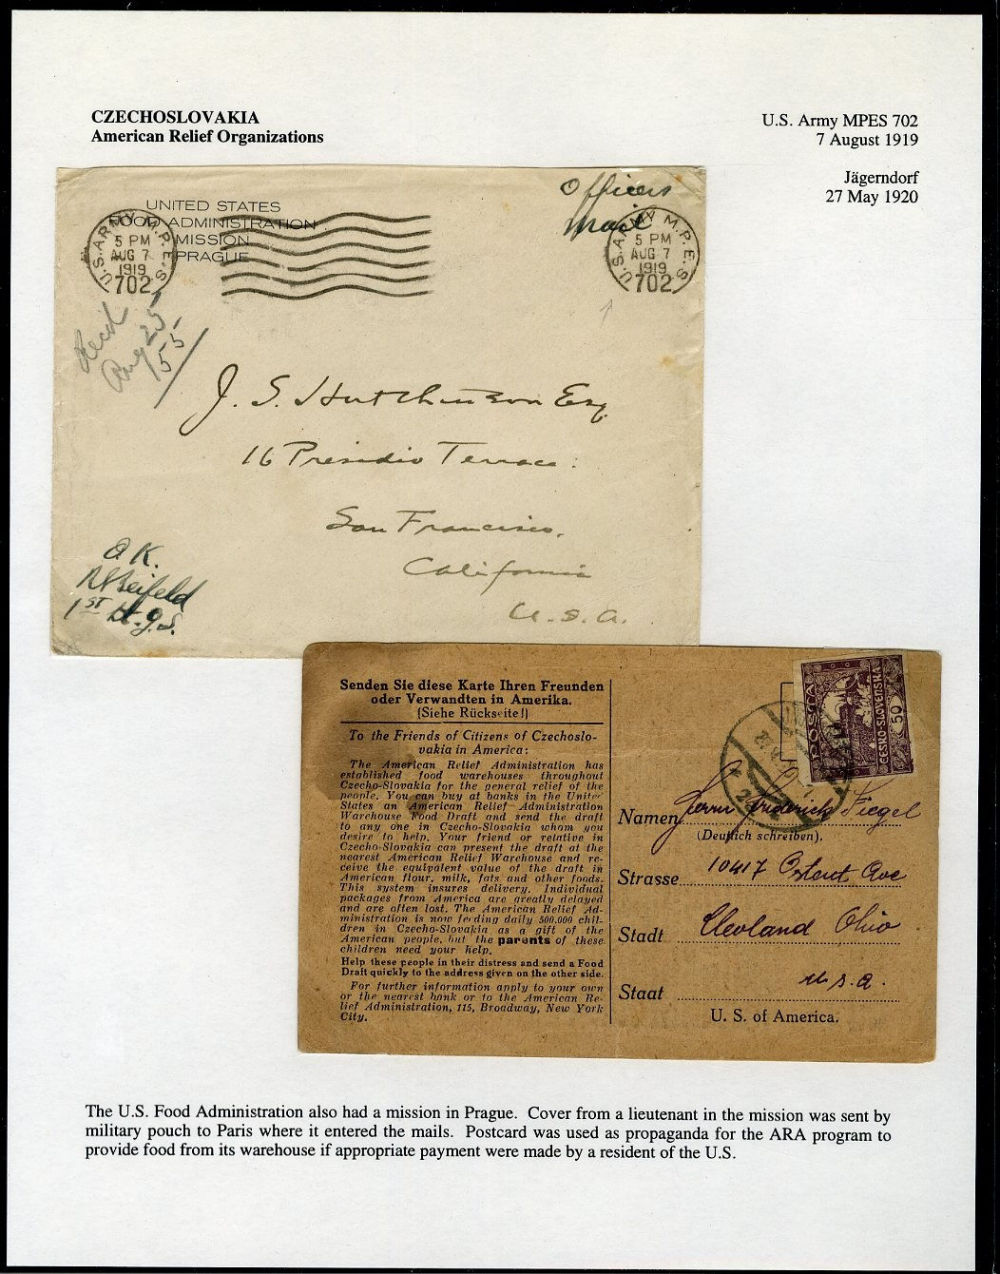 CZECHOSLOVAKIA
American Relief Organizations
U.S. Army MPES 702
7 August 1919
Jägerndorf
27 May 1920
UNITED STATES
FOOD ADMINISTRATION
MISSION
PRAGUE
U.S. ARMY M.P.E.S.
5 PM
AUG 7
1919
702
Officers
Mail
U.S. ARMY M.P.E.S.
5 PM
AUG 7
1919
702
Rec'd
Aug 25
55
J. S. Hutchinson Esq
16 Presidio Terrace.
San Francisco.
California
U.S.A.
O.K.
1ST Lt.
Senden Sie diese Karte Ihren Freunden
oder Verwandten in Amerika.
(Siehe Rückseite!)
To the Friends of Citizens of Czechoslo-
vakia in America:
The American Relief Administration has
established food warehouses throughout
Czecho-Slovakia for the general relief of the
people. You can buy at banks in the United
States an American Relief Administration
Warehouse Food Draft and send the draft
to any one in Czecho-Slovakia whom you
desire to help. Your friend or relative in
Czecho-Slovakia can present the draft at the
nearest American Relief Warehouse and re-
ceive the equivalent value of the draft in
American flour, milk, fats and other foods.
This system insures delivery. Individual
packages from America are greatly delayed
and are often lost. The American Relief Ad-
ministration is now feeding daily 500.000 chil-
dren in Czecho-Slovakia as a gift of the
American people, but the parents of these
children need your help.
Help these people in their distress and send a Food
Draft quickly to the address given on the other side.
For further information apply to your own
or the nearest bank or to the American Re-
lief Administration, 115, Broadway, New York
City.
POŠTA
ČESKO-SLOVENSKÁ
50
Namen Herrn Friderick Fiegel
(Deutlich schreiben).
Strasse 10417 Ave
Stadt Cleveland Ohio
Staat U.S.A.
U. S. of America.
The U.S. Food Administration also had a mission in Prague. Cover from a lieutenant in the mission was sent by
military pouch to Paris where it entered the mails. Postcard was used as propaganda for the ARA program to
provide food from its warehouse if appropriate payment were made by a resident of the U.S.